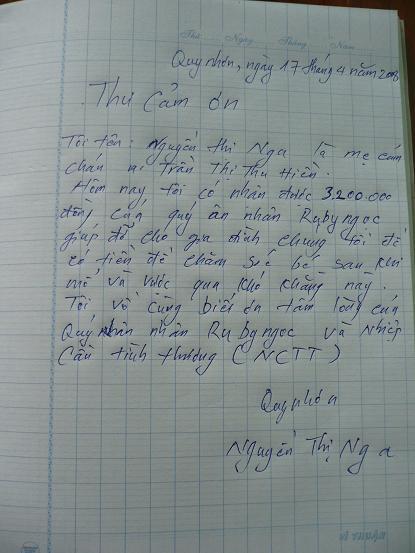 Thứ Ngày Tháng Năm
Quy nhơn, ngày 17 tháng 4 năm 2008
Thư Cảm ơn
Tôi tên: Nguyễn thị Nga là mẹ của
cháu Trần Thị Thu Hiền.
Hôm nay tôi có nhận được 3.200.000
đồng của quý ân nhân Rubyngoc
giúp đỡ cho gia đình chúng tôi để
có tiền để chăm sóc bé sau khi
mổ và vược qua khó khăng này.
Tôi vô cùng biết ơn tấm lòng của
Quý nhân Rubyngoc và Nhịp
Cầu tình thương (NCTT)
Quy nhơn
Nguyễn Thị Nga
VĨ THUẬN